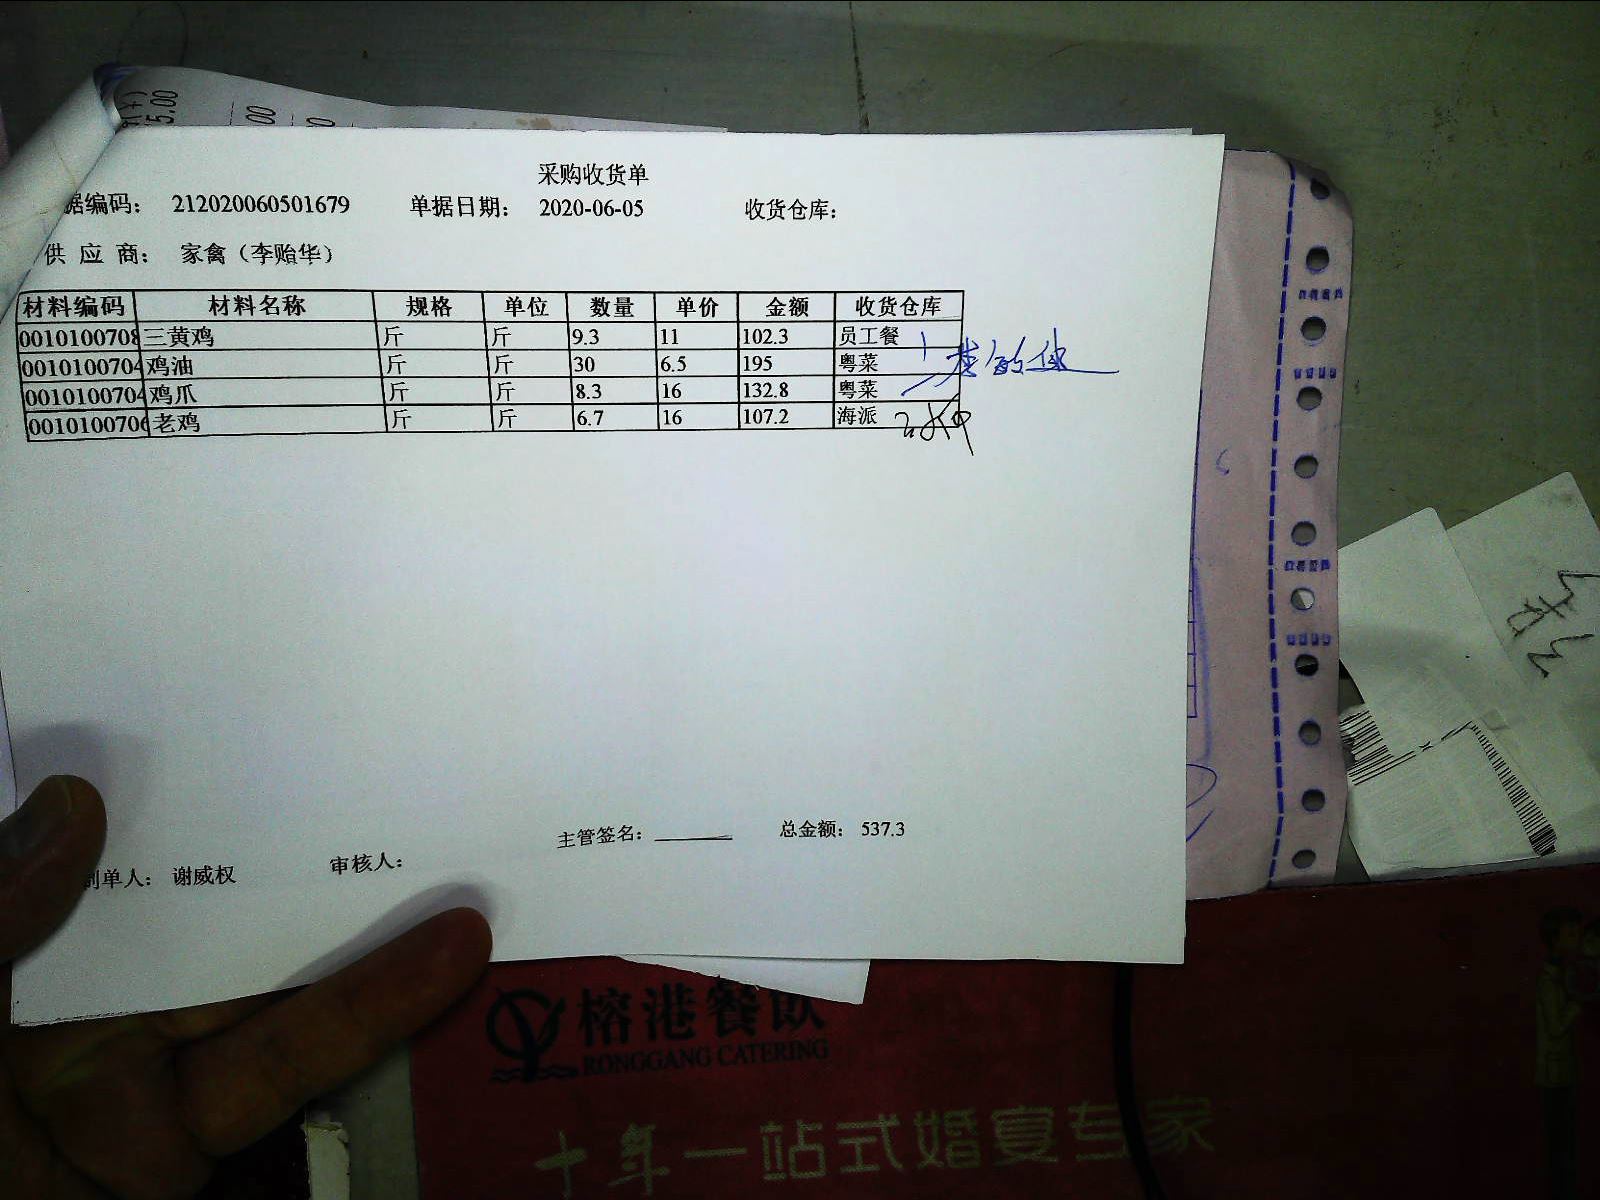 5.00
00
采购收货单
据编码： 212020060501679 单据日期： 2020-06-05 收货仓库：
供 应 商： 家禽（李贻华）
材料编码 材料名称 规格 单位 数量 单价 金额 收货仓库
0010100708 三黄鸡 斤 斤 9.3 11 102.3 员工餐
001010070 鸡油 斤 斤 30 6.5 195 粤菜
001010070 鸡爪 斤 斤 8.3 16 132.8 粤菜
001010070 老鸡 斤 斤 6.7 16 107.2 海派
主管签名： 总金额： 537.3
制单人： 谢威权 审核人：
榕港餐飲
RONGGANG CATERING
十年一站式婚宴专家